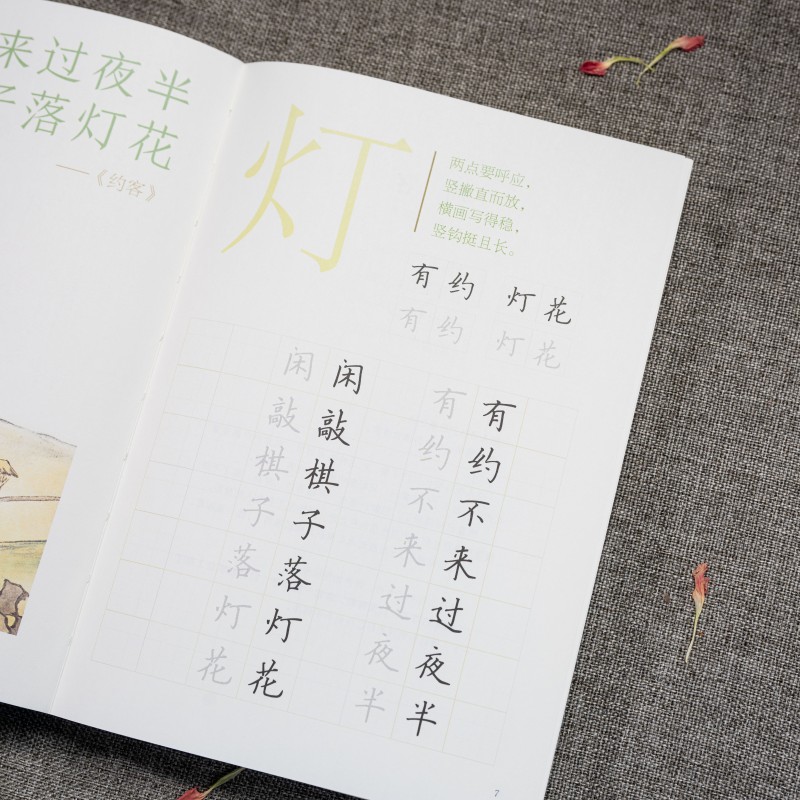 来过夜半
子落灯花
——《约客》
灯
两点要呼应，
竖撇直而放，
横画写得稳，
竖钩挺且长。
有约 灯花
有约 灯花
有约不来过夜半
有约不来过夜半
闲敲棋子落灯花
闲敲棋子落灯花
7